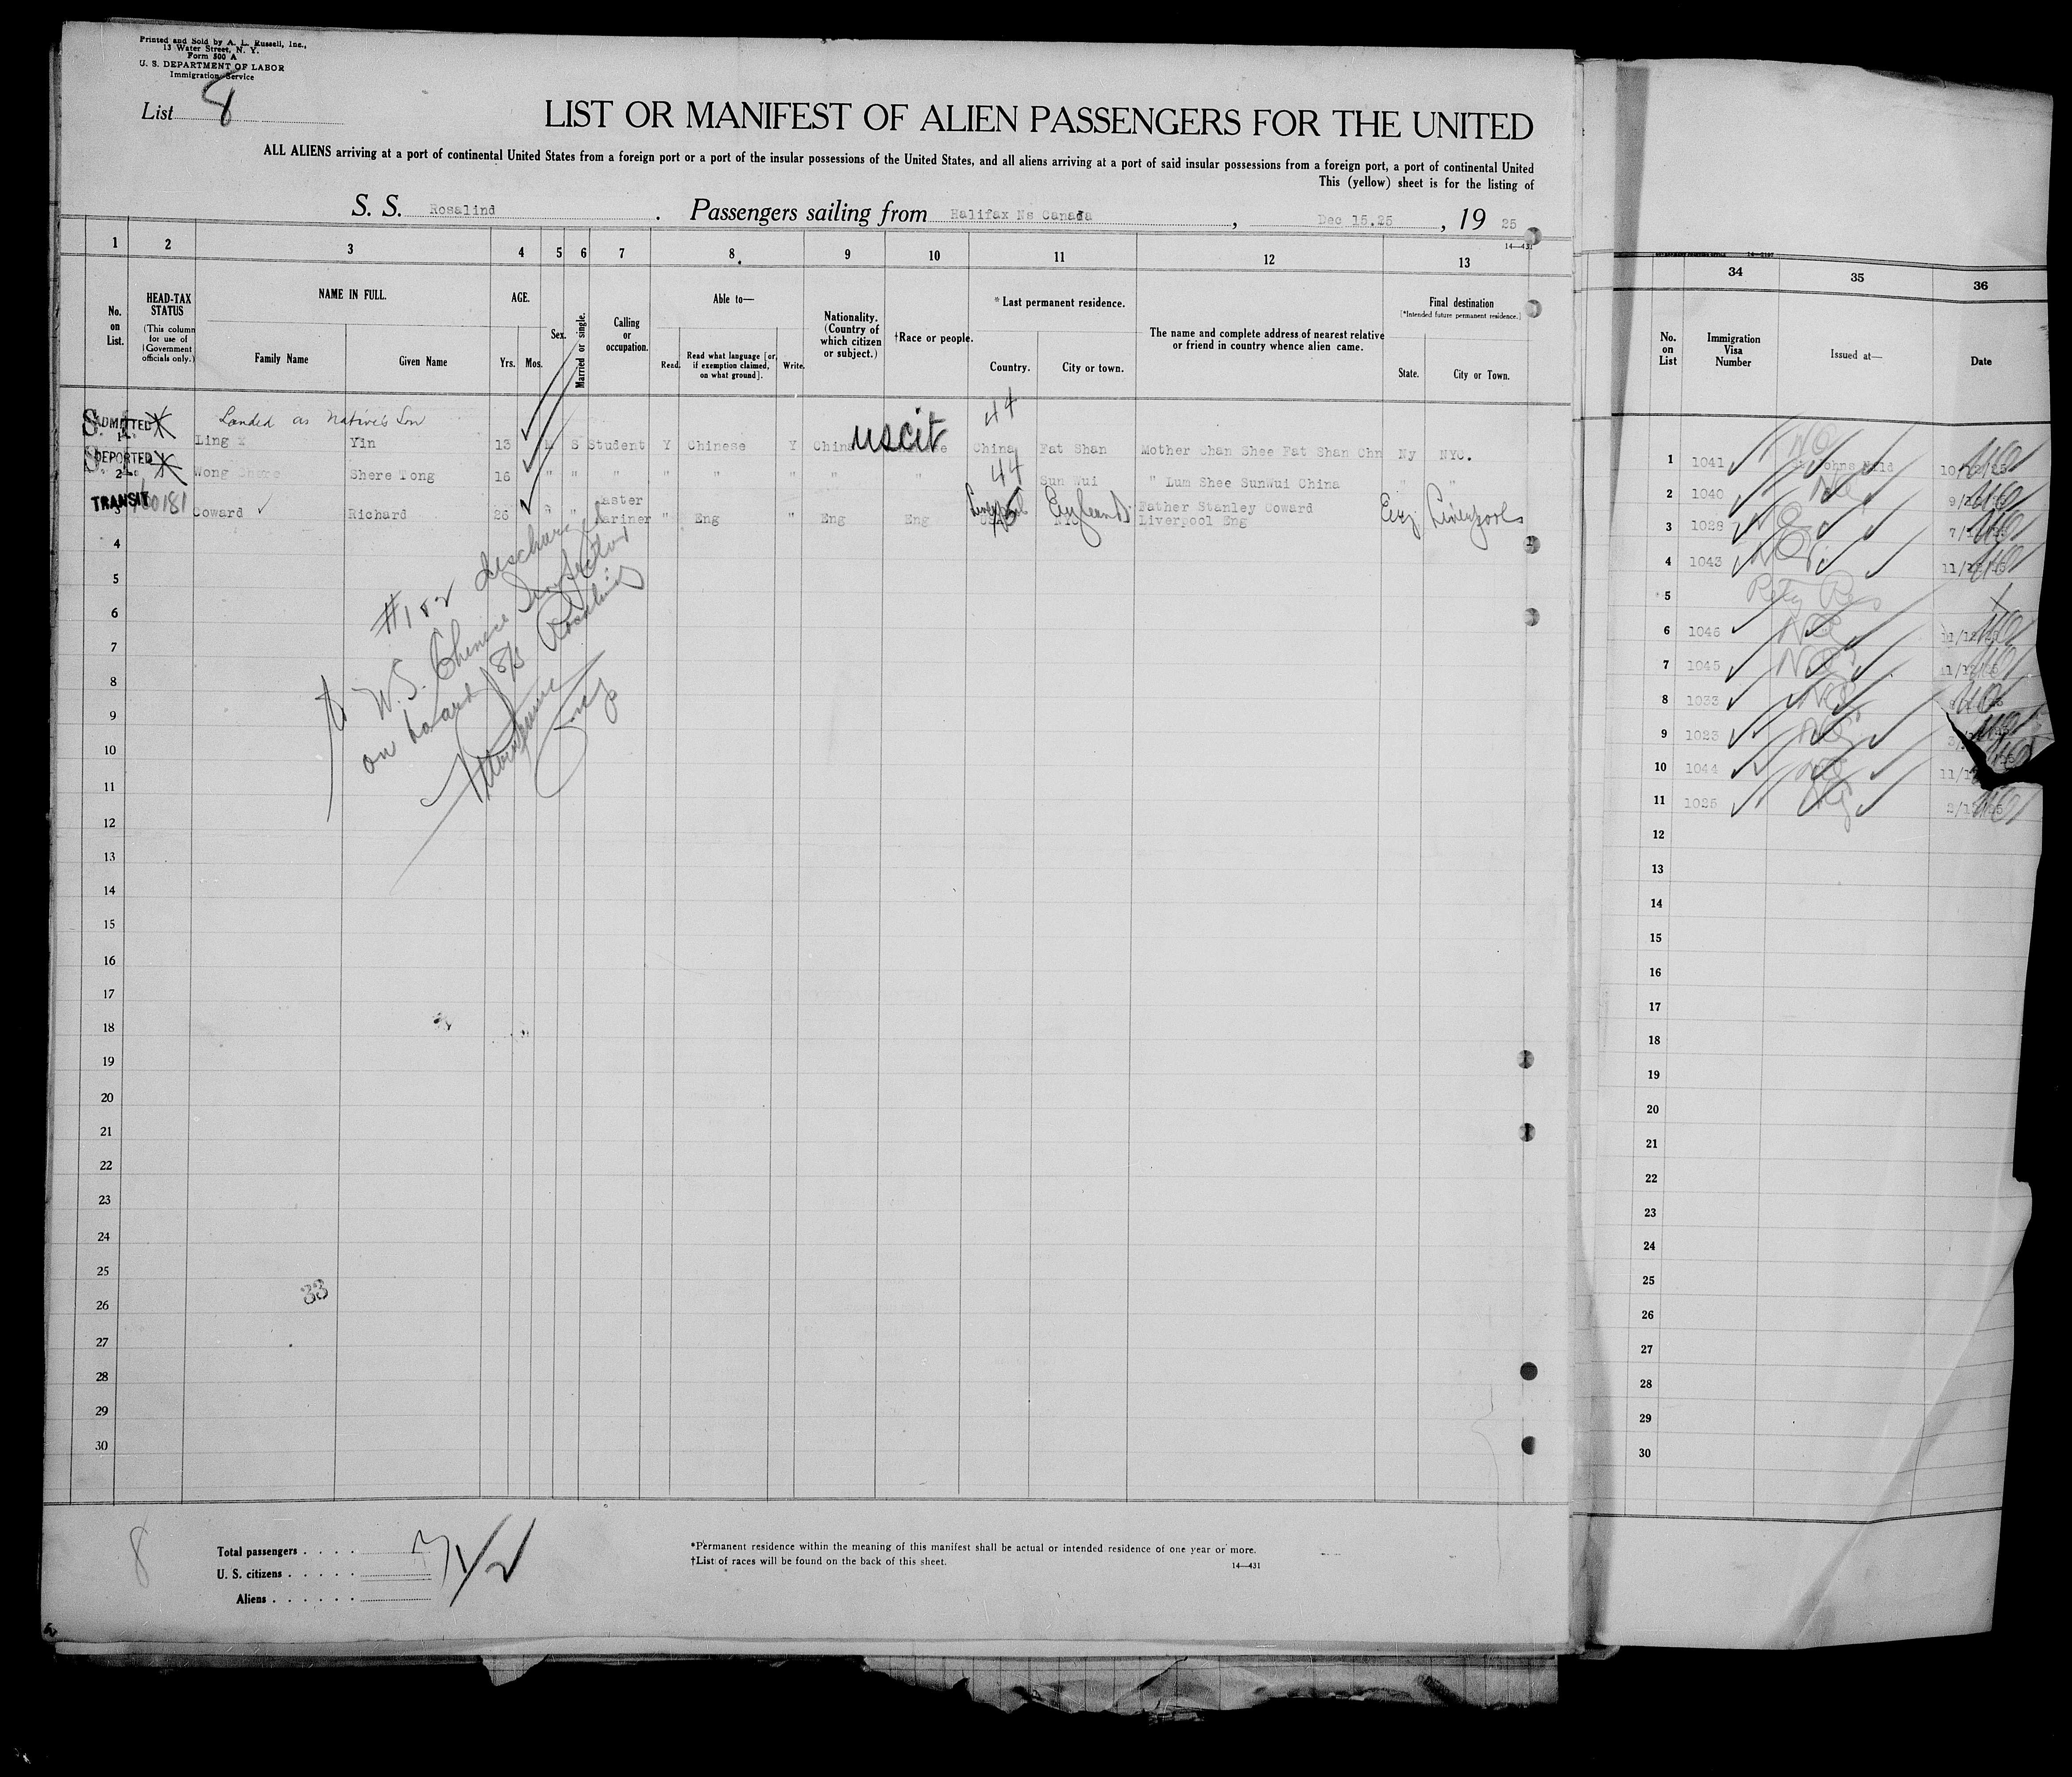 Printed and Sold by A. L. Russell, Inc.,
13 Water Street, N. Y.
Form 500 A
U. S. DEPARTMENT OF LABOR
Immigration Service
List 8
LIST OR MANIFEST OF ALIEN PASSENGERS FOR THE UNITED
ALL ALIENS arriving at a port of continental United States from a foreign port or a port of the insular possessions of the United States, and all aliens arriving at a port of said insular possessions from a foreign port, a port of continental United
This (yellow) sheet is for the listing of
S. S. Rosalind . Passengers sailing from Halifax Ns Canada , Dec 15.25 , 19 25
14—431
1 2 3 4 5 6 7 8. 9 10 11 12 13
No. on List.
HEAD-TAX STATUS
(This column for use of Government officials only.)
NAME IN FULL.
Family Name
Given Name
AGE.
Yrs. Mos.
Sex.
Married or single.
Calling or occupation.
Able to—
Read.
Read what language [or, if exemption claimed, on what ground].
Write.
Nationality. (Country of which citizen or subject.)
†Race or people.
* Last permanent residence.
Country.
City or town.
The name and complete address of nearest relative or friend in country whence alien came.
Final destination
[*Intended future permanent residence.]
State.
City or Town.
Landed as Native's Son
44
ADMITTED
1 Ling Yin 13 M S Student Y Chinese Y China uscit China Fat Shan Mother Chan Shee Fat Shan Chn Ny NYC.
DEPORTED
2 Wong Shere Tong 16 " " " " " " " " 44 Sun Wui " Lum Shee SunWui China " "
TRANSIT
3 Coward Richard 26 " " Master Mariner " Eng " Eng Eng Liverpool England Father Stanley Coward Liverpool Eng Eng Liverpool
4
5
6
7
8
9
10
11
12
13
14
15
16
17
18
19
20
21
22
23
24
25
26
27
28
29
30
#1 & 2 discharged
to U.S. Chinese Inspector
on board S/S Rosalind
33
8
Total passengers . . . .
U. S. citizens . . . . .
Aliens . . . . . .
*Permanent residence within the meaning of this manifest shall be actual or intended residence of one year or more.
†List of races will be found on the back of this sheet.
14—431
34 35 36
No. on List
Immigration Visa Number
Issued at—
Date
1 1041
2 1040
3 1028
4 1043
5
6 1046
7 1045
8 1033
9 1023
10 1044
11 1025
12
13
14
15
16
17
18
19
20
21
22
23
24
25
26
27
28
29
30